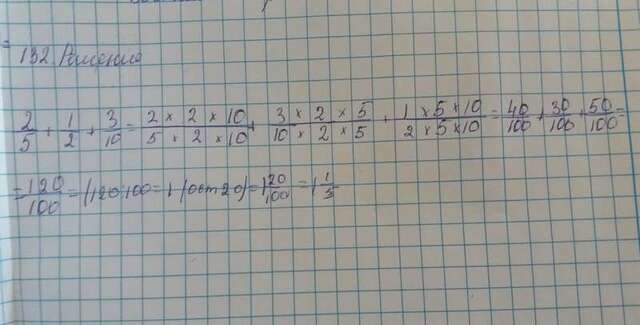 132. Решение
2/5 + 1/2 + 3/10 = 2 × 2 × 10 / 5 × 2 × 10 + 3 × 2 × 5 / 10 × 2 × 5 + 1 × 5 × 10 / 2 × 5 × 10 = 40/100 + 30/100 + 50/100 =
= 120/100 = (120:100 = 1 (ост 20) = 1 20/100 = 1 1/5